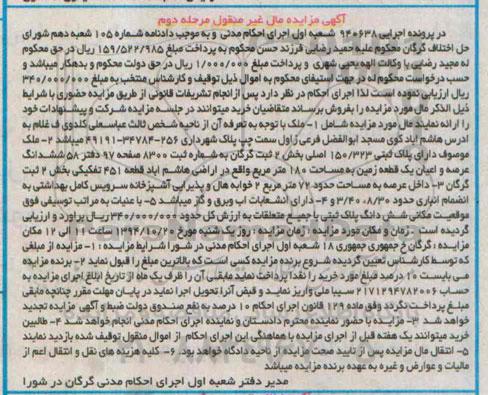 آگهی مزایده مال غیر منقول مرحله دوم
در پرونده اجرایی ۹۴۰۶۳۸ شعبه اول اجرای احکام مدنی و به موجب دادنامه شماره ۱۰۵ شعبه دهم شورای
حل اختلاف گرگان محکوم علیه حمید رضایی فرزند حسن محکوم به پرداخت مبلغ ۱۵۹/۵۲۲/۹۸۵ ریال در حق محکوم
له مجید رضایی با وکالت الهه یحیی شهری و پرداخت مبلغ ۱/۰۰۰/۰۰۰ ریال در حق دولت محکوم و بدهکار میباشد و
حسب درخواست محکوم له در جهت استیفای محکوم به اموال ذیل توقیف و کارشناس منتخب به مبلغ ۳۴۰/۰۰۰/۰۰۰
ریال ارزیابی نموده است لذا اجرای احکام در نظر دارد پس از انجام تشریفات قانونی از طریق مزایده حضوری با شرایط
ذیل الذکر مال مورد مزایده را بفروش برساند متقاضیان خرید میتوانند در جلسه مزایده شرکت و پیشنهادات خود
را ارائه نمایند مال مورد مزایده شامل ۱- ملک با توجه به تعرفه آن از ناحیه شخص ثالث عباسعلی کلدوی ف غلام به
ادرس هاشم اباد کوی مسجد ابوالفضل فرعی زاول سمت چپ پلاک شهرداری ۲۵۶-۳۴۷۸۴-۴۹۱۹۱ میباشد ۲- ملک
موصوف دارای پلاک ثبتی ۱۵۰/۳۲۳ اصلی بخش ۲ ثبت گرگان به شماره ثبت ۸۳۰۰ صفحه ۹۷ دفتر ۵۸ ششدانگ
عرصه و اعیان یک قطعه زمین به مساحت ۱۸۰ متر مربع واقع در اراضی هاشم اباد قطعه ۴۵۱ تفکیکی بخش ۲ ثبت
گرگان ۳- داخل عرصه به مساحت حدود ۷۲ متر مربع ۲ خوابه هال و پذیرایی آشپزخانه سرویس کامل بهداشتی به
انضمام انباری حدود ۸/۳۰ ۳/۴۰ و ۴- دارای انشعابات اب وبرق و گاز میباشد ۵- با عنایات به مراتب توصیفی فوق
موقعیت مکانی شش دانگ پلاک ثبتی با جمیع متعلقات به ارزش کل حدود ۳۴۰/۰۰۰/۰۰۰ ریال براورد و ارزیابی
گردیده است . زمان و مکان مورد مزایده : زمان مزایده : روز یک شنبه مورخ ۱۳۹۴/۱۰/۲۰ ساعت ۱۱ الی ۱۲ مکان
مزایده : گرگان خ جمهوری جمهوری ۱۸ شعبه اول اجرای احکام مدنی در شورا شرایط مزایده : ۱- مزایده از مبلغی
که توسط کارشناس تعیین گردیده شروع برنده مزایده کسی است که بالاترین مبلغ را قبول نماید ۲- برنده مزایده
می بایست ۱۰ درصد مبلغ مورد خرید را نقدا پرداخت نماید مابقی آن را ظرف یک ماه از تاریخ ابلاغ اجرای مزایده به
حساب ۲۱۷۱۲۹۴۷۸۲۰۰۶ سیبا ملی واریز نماید و قبض آنرا تحویل اجرا نماید در پایان مهلت مقرر چنانچه مابقی
مبلغ پرداخت نگردد وفق ماده ۱۲۹ قانون اجرای احکام ۱۰ درصد به نفع صندوق دولت ضبط و آگهی مزایده تجدید
خواهد شد ۳- مزایده با حضور نماینده محترم دادستان و نماینده اجرای احکام مدنی انجام خواهد شد ۴- طالبین
خرید میتوانند یک هفته قبل از اجرای مزایده با هماهنگی این اجرای احکام از اموال منقول توقیف شده بازدید نمایند
۵- انتقال مال مزایده پس از تایید صحت مزایده از ناحیه دادگاه خواهد بود. ۶- کلیه هزینه های نقل و انتقال اعم از
مالیات و عوارض و غیره به عهده برنده مزایده میباشد
مدیر دفتر شعبه اول اجرای احکام مدنی گرگان در شورا